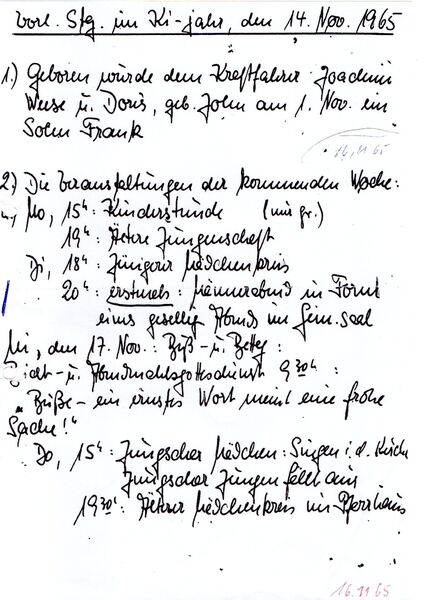 vorl. Stg. im Ki-jahr, den 14. Nov. 1965
1.) Geboren wurde dem Kraftfahrer Joachim
Weise u. Doris, geb. John am 1. Nov. ein
Sohn Frank
16.11.65
2.) Die Veranstaltungen der kommenden Woche:
Mo, 15h: Kinderstunde (nur gr.)
19h: Ältere Jungenschaft
Di, 18h: Jüngerer Mädchenkreis
20h: erstmals: Männerabend in Form
eines gesellig Abends im Gem.saal
Mi, den 17. Nov.: Buß- u. Bettag:
Beicht- u. Abendmahlsgottesdienst 930h:
"Buße - ein ernstes Wort meint eine frohe
Sache!"
Do, 15h: Jungschar Mädchen: Singen i. d. Kirche
Jungschar Jungen fällt aus
1930h: Älterer Mädchenkreis im Pfarrhaus
16.11.65